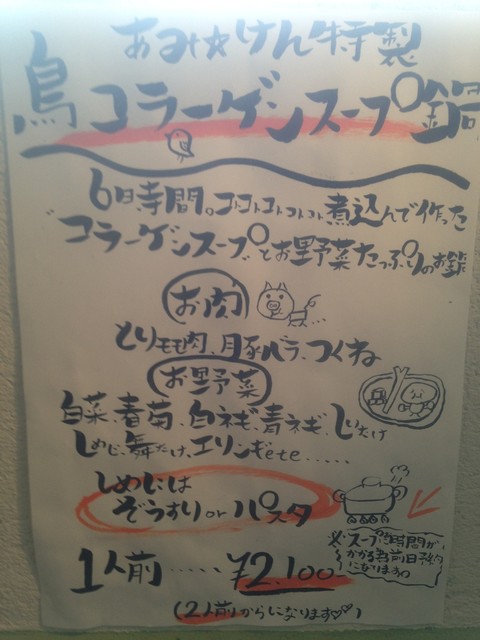 あみ☆けん特製
鳥コラーゲンスープ鍋
6時間。コトコトコトコト煮込んで作った
"コラーゲンスープ"とお野菜たっぷりのお鍋
お肉
とりモモ肉、豚バラ、つくね
お野菜
白菜、春菊、白ネギ、青ネギ、しいたけ
しめじ、舞たけ、エリンギete......
しめには
ぞうすい or パスタ
※スープに時間が
かかる為前日予約
になります
1人前.....¥2.100
(2人前からになります♡♡)